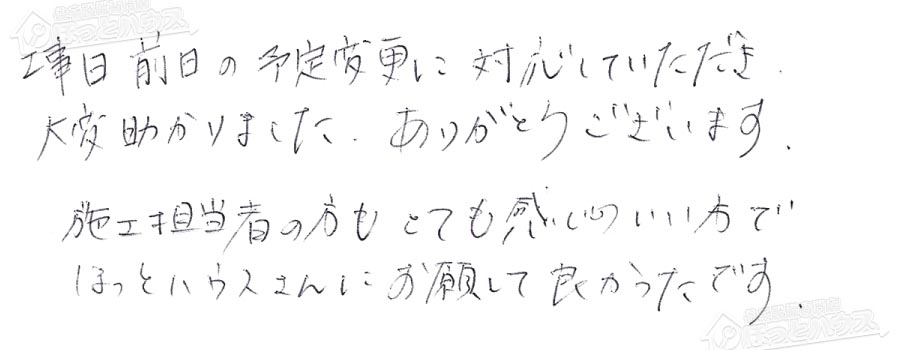 工事日前日の予定変更に対応していただき.
大変助かりました. ありがとうございます.
施工担当者の方もとても感じのいい方で
ほっとハウスさんにお願して良かったです.
ほっとハウス
ほっとハウス